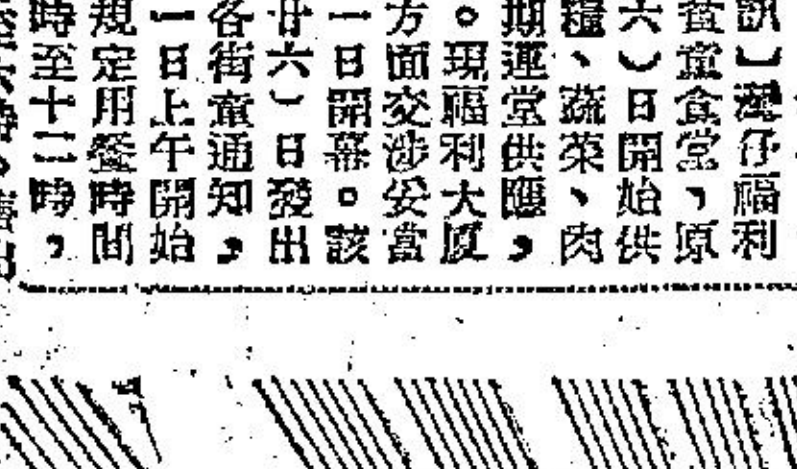 訊】灣仔福利
貧童食堂，原
六）日開始供
糧、蔬菜、肉
期運堂供應，
。現福利大厦
方面交涉妥當
一日開幕。該
廿六）日發出
各街童通知，
一日上午開始
規定用餐時間
時至十二時，